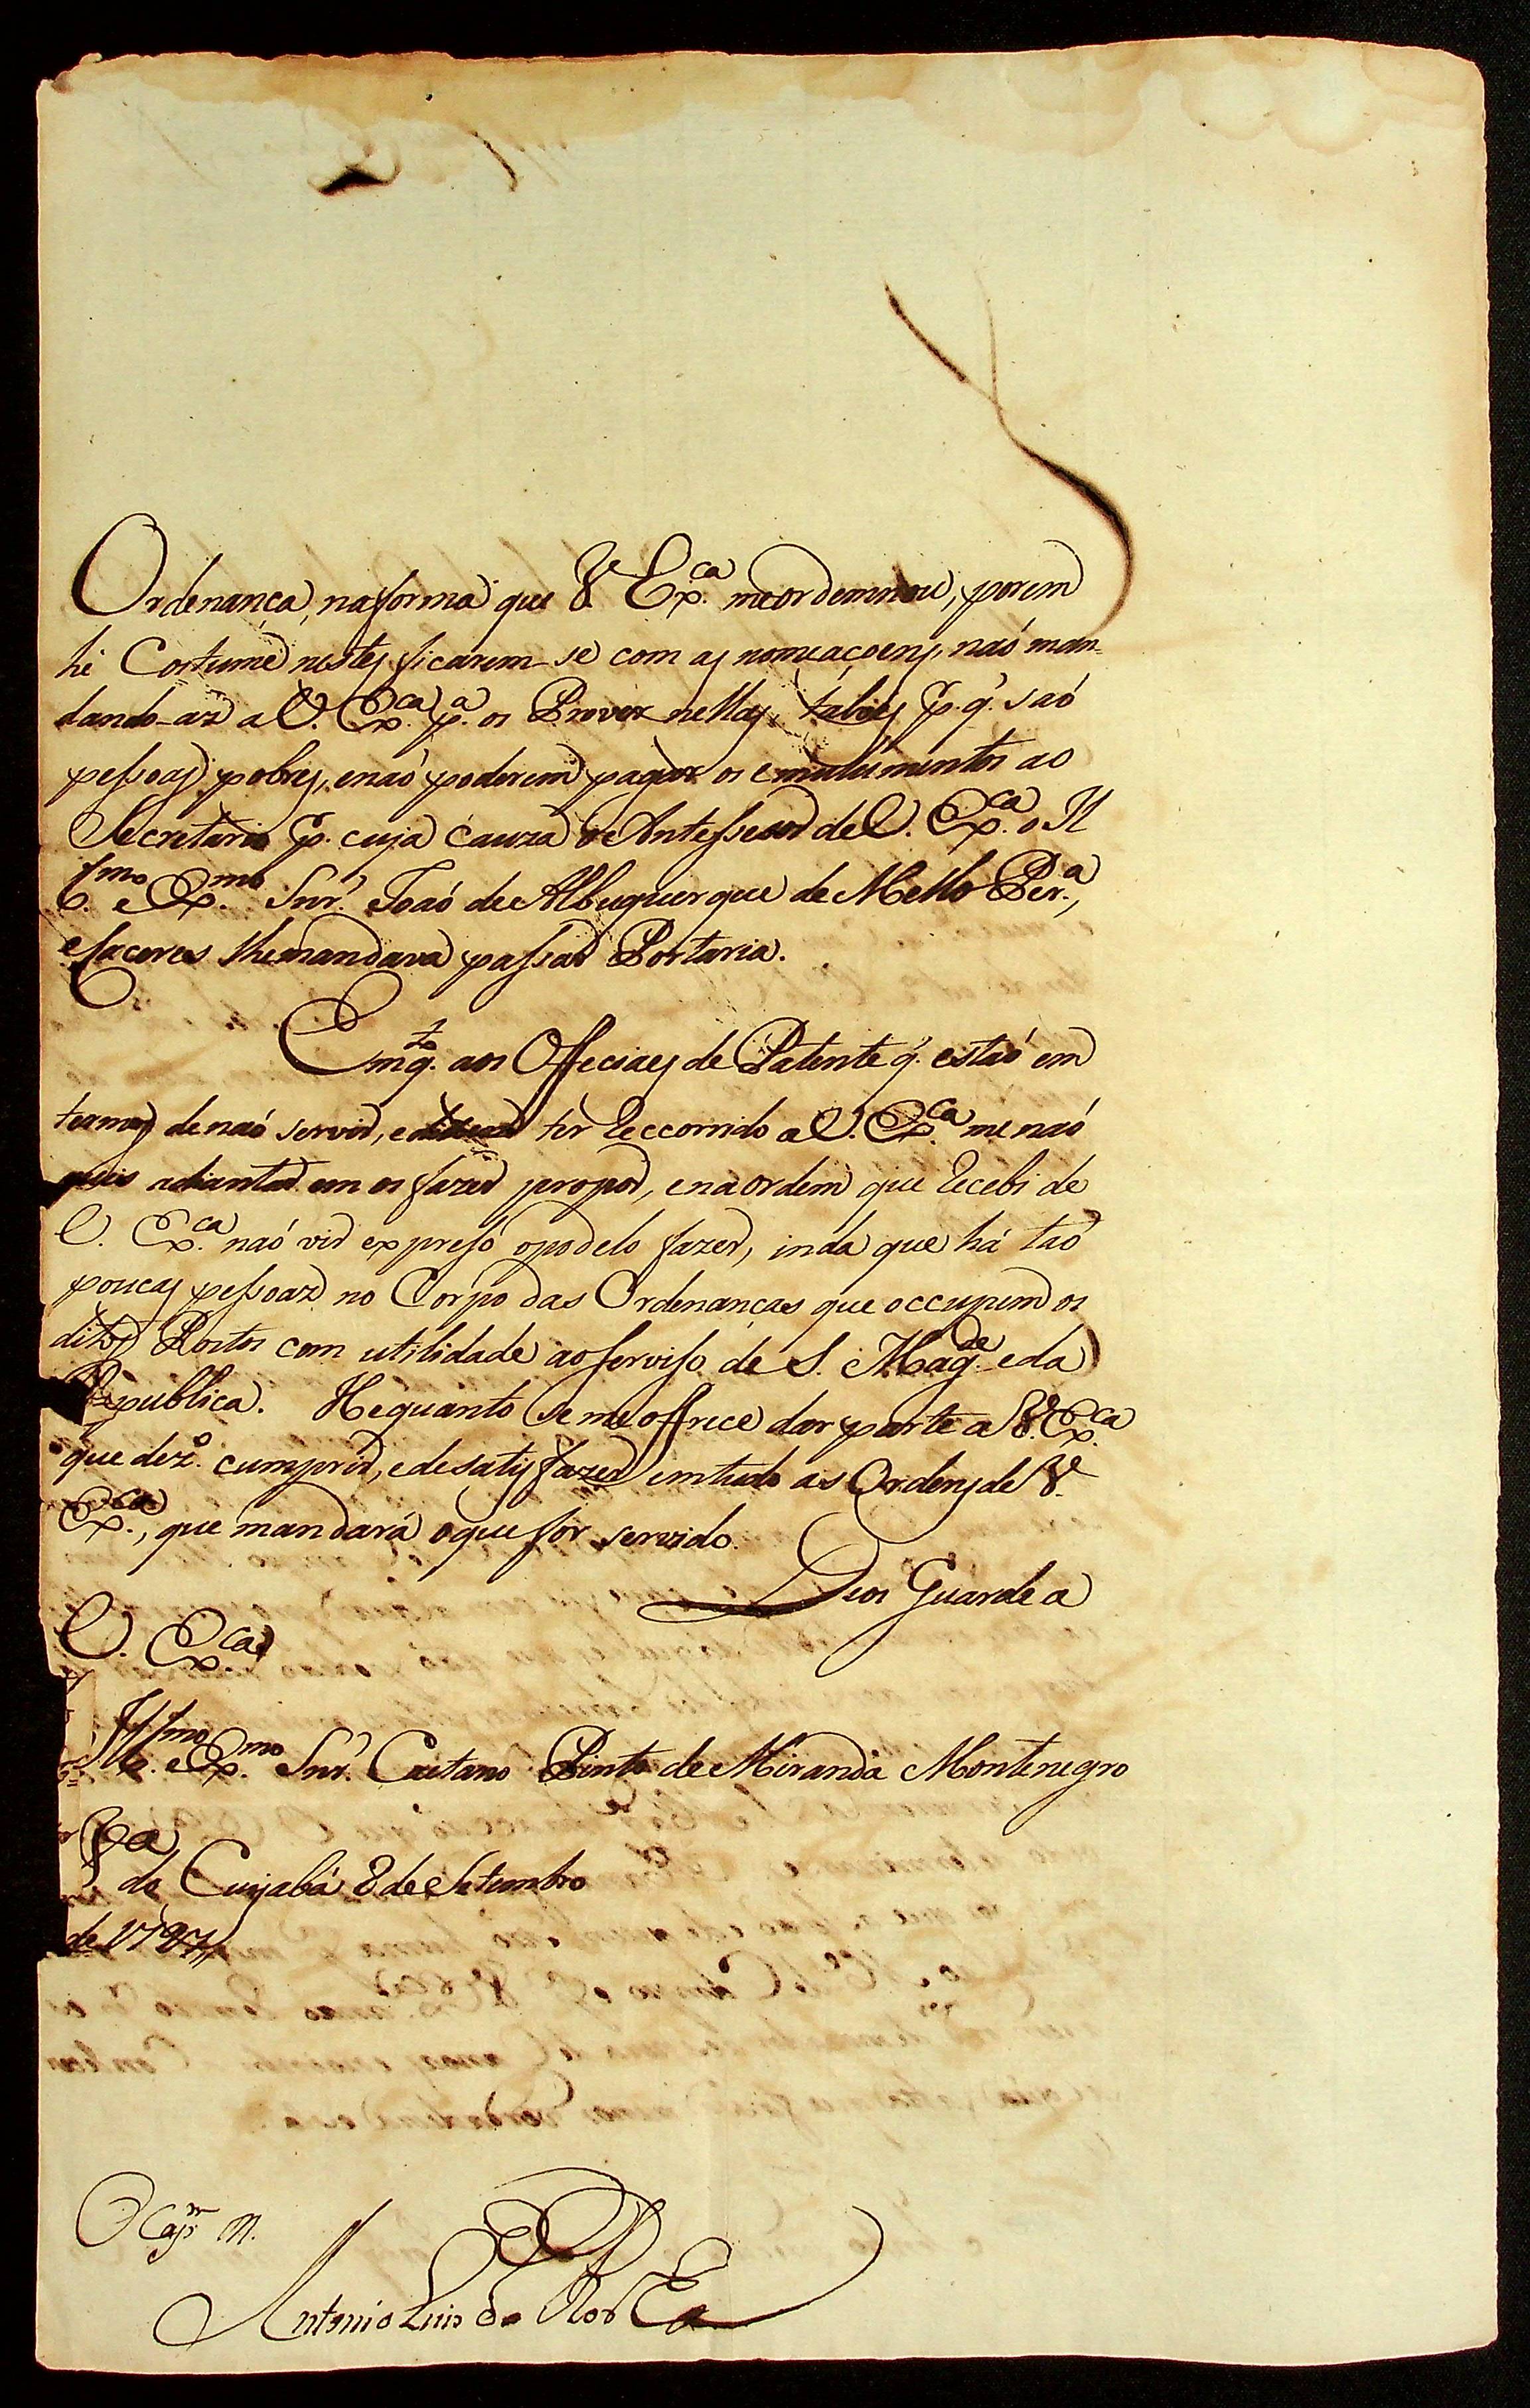 Ordenança, naforma que V. Ex.ca meordennou, porem
hé Costume nestes ficarem-se com as nomeaçoens, naó man-
dando-as a V. Ex.ca p.a os Prover nellas, talves p.q. saó
pessoas pobres, enaó poderem pagar os emulumentos ao
Secretario p. cuja cauza o Antessesor de V. Ex.ca o Il
l.mo e Ex.mo Snr. Joaó de Albuquerque de Mello Per.a,
eCaceres lhemandava passar Portaria.
Emq.to aos Offeciaes de Patente q. estaó em
termos denaó servir, ter Reccorrido a V. Ex.ca me naó
quis adiantar em os fazer propor, ena ordem que Recebi de
V. Ex.ca naó vir expreso opodelo fazer, inda que há taó
poucas pessoas no Corpo das Ordenanças que occupem os
ditos Postos com utilidade aoserviso de S. Mag.de eda
Republica. Hequanto semeoffrece dar parte a V. Ex.ca
que dez.o cumprir, edesatisfazer emtudo as Ordens de V.
Ex.ca, que mandará oque for servido.
Deos Guarde a
V. Ex.ca
Ill.mo e Ex.mo Snr. Caetano Pinto de Miranda Montenegro
V.a
do Cuyabá 8 de Setembro
de 1797
O Cap.m M.
Antonio Luis da Rocha